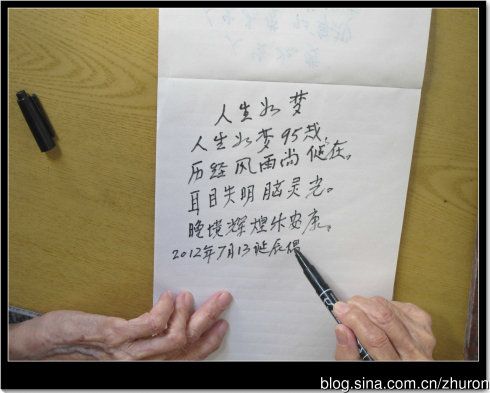 人生如梦
人生如梦95载,
历经风雨尚健在。
耳目失明脑灵光。
晚境辉煌乐安康。
2012年7月13诞辰偶
blog.sina.com.cn/zhuron